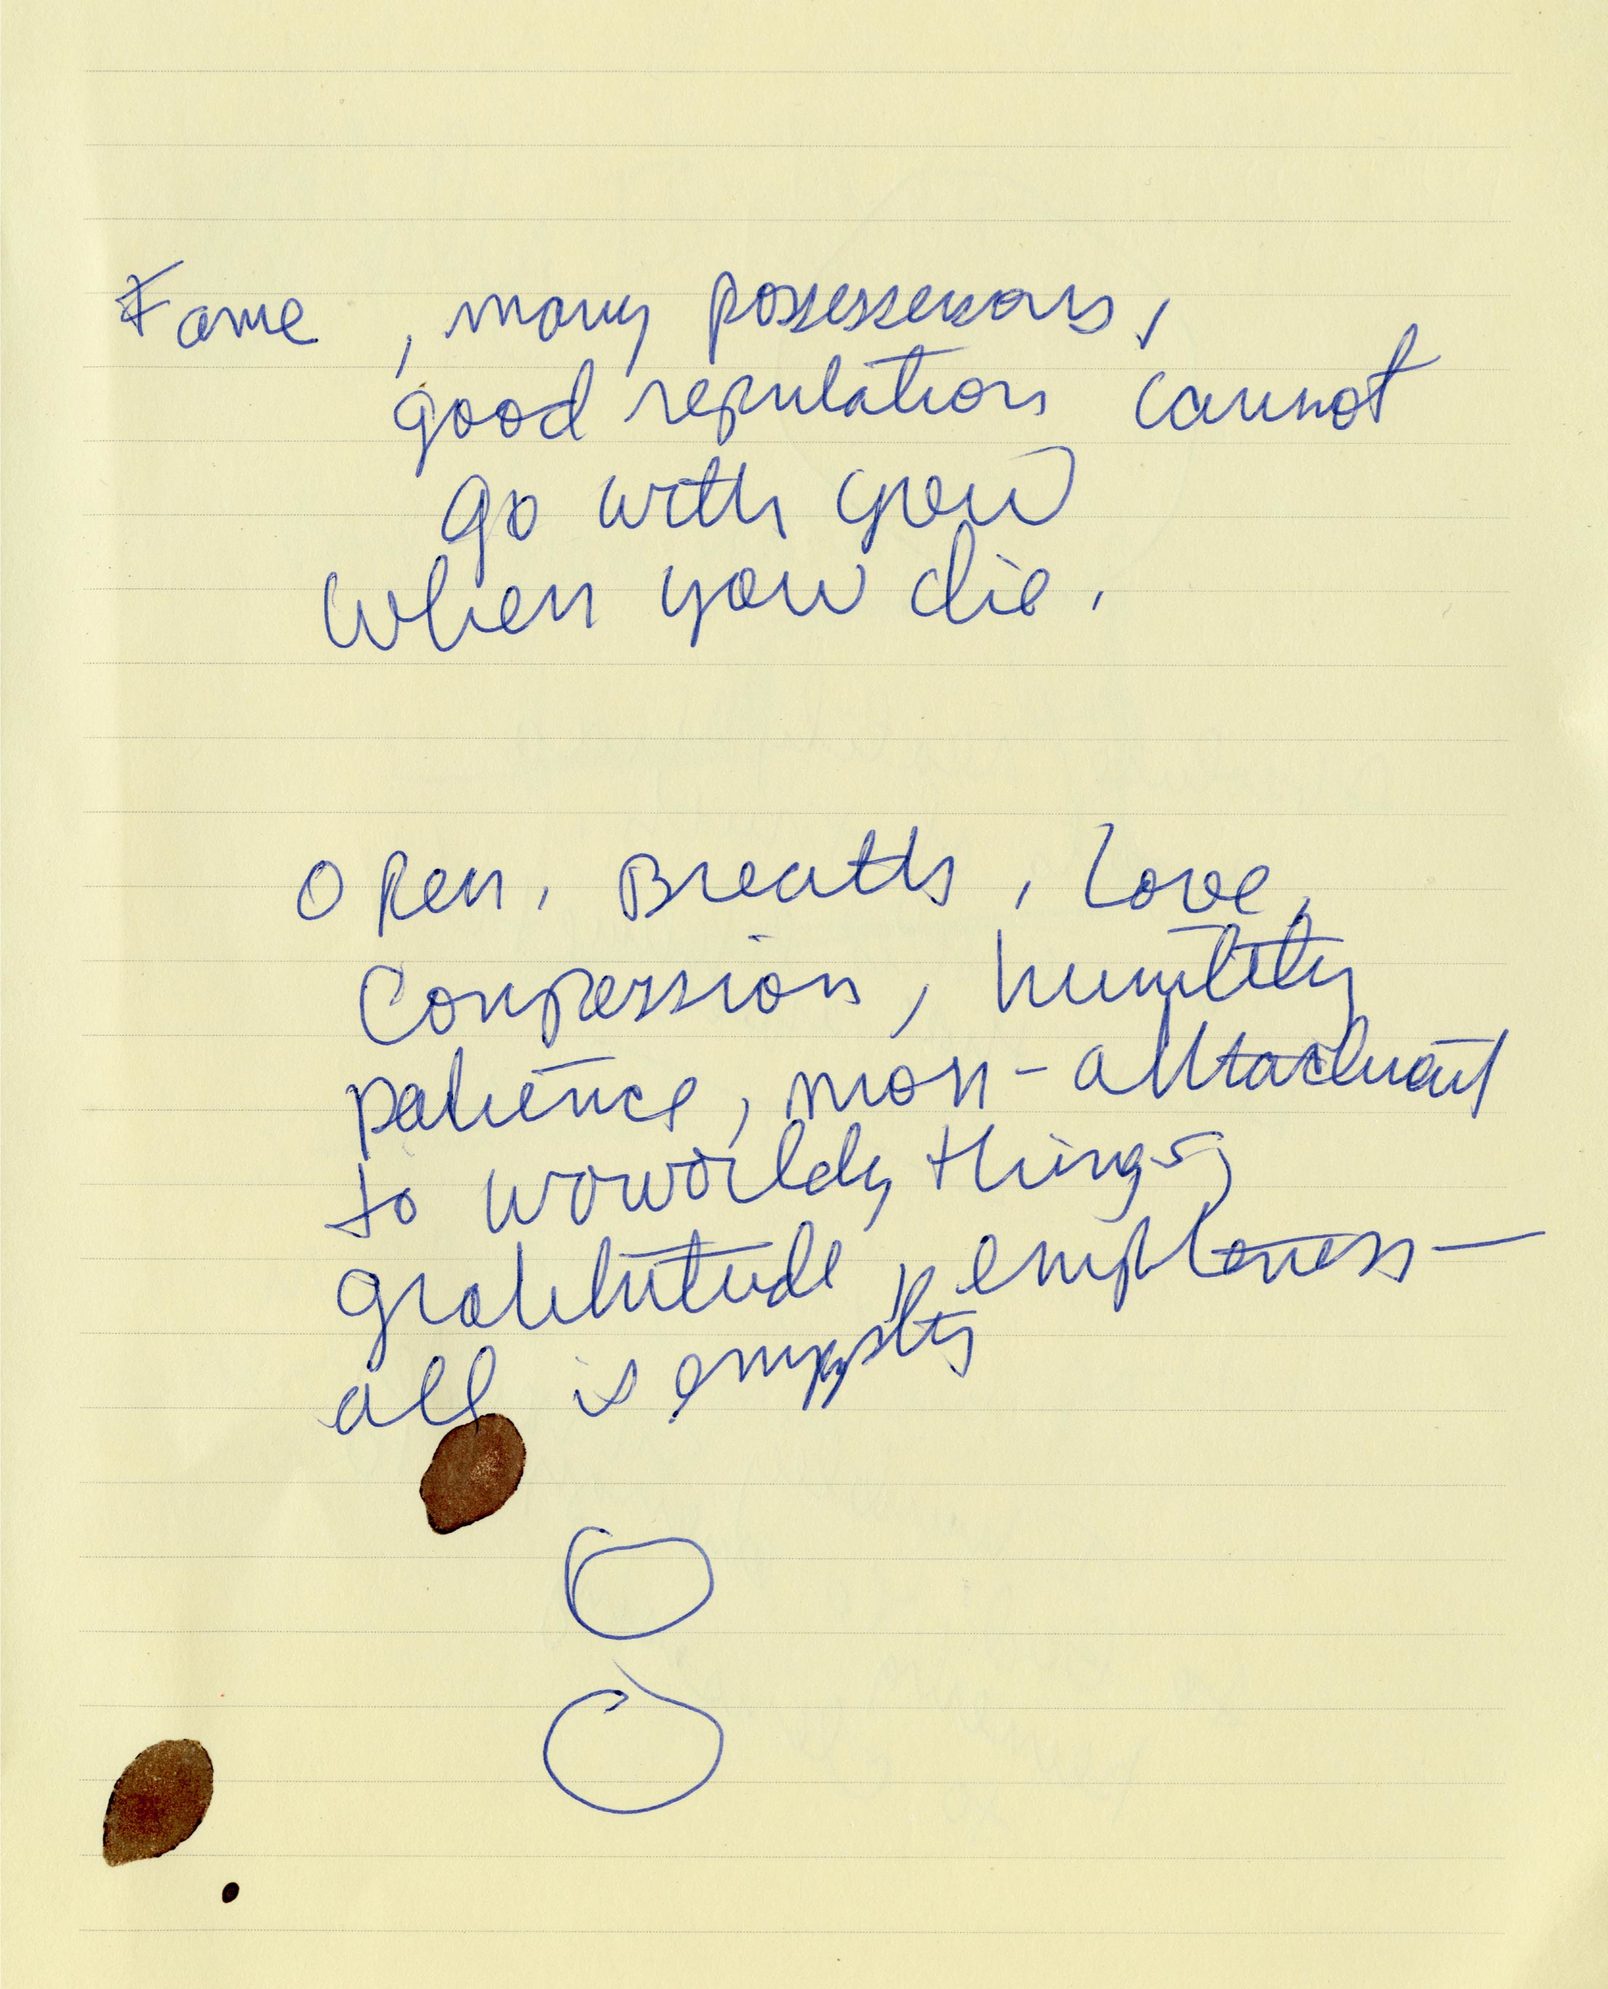 Fame, many possessions,
good reputation cannot
go with you
when you die.
Open, Breath, Love,
Compassion, humility
patience, non-attachment
to woworldy things,
gratitude, emptiness—
all is empty